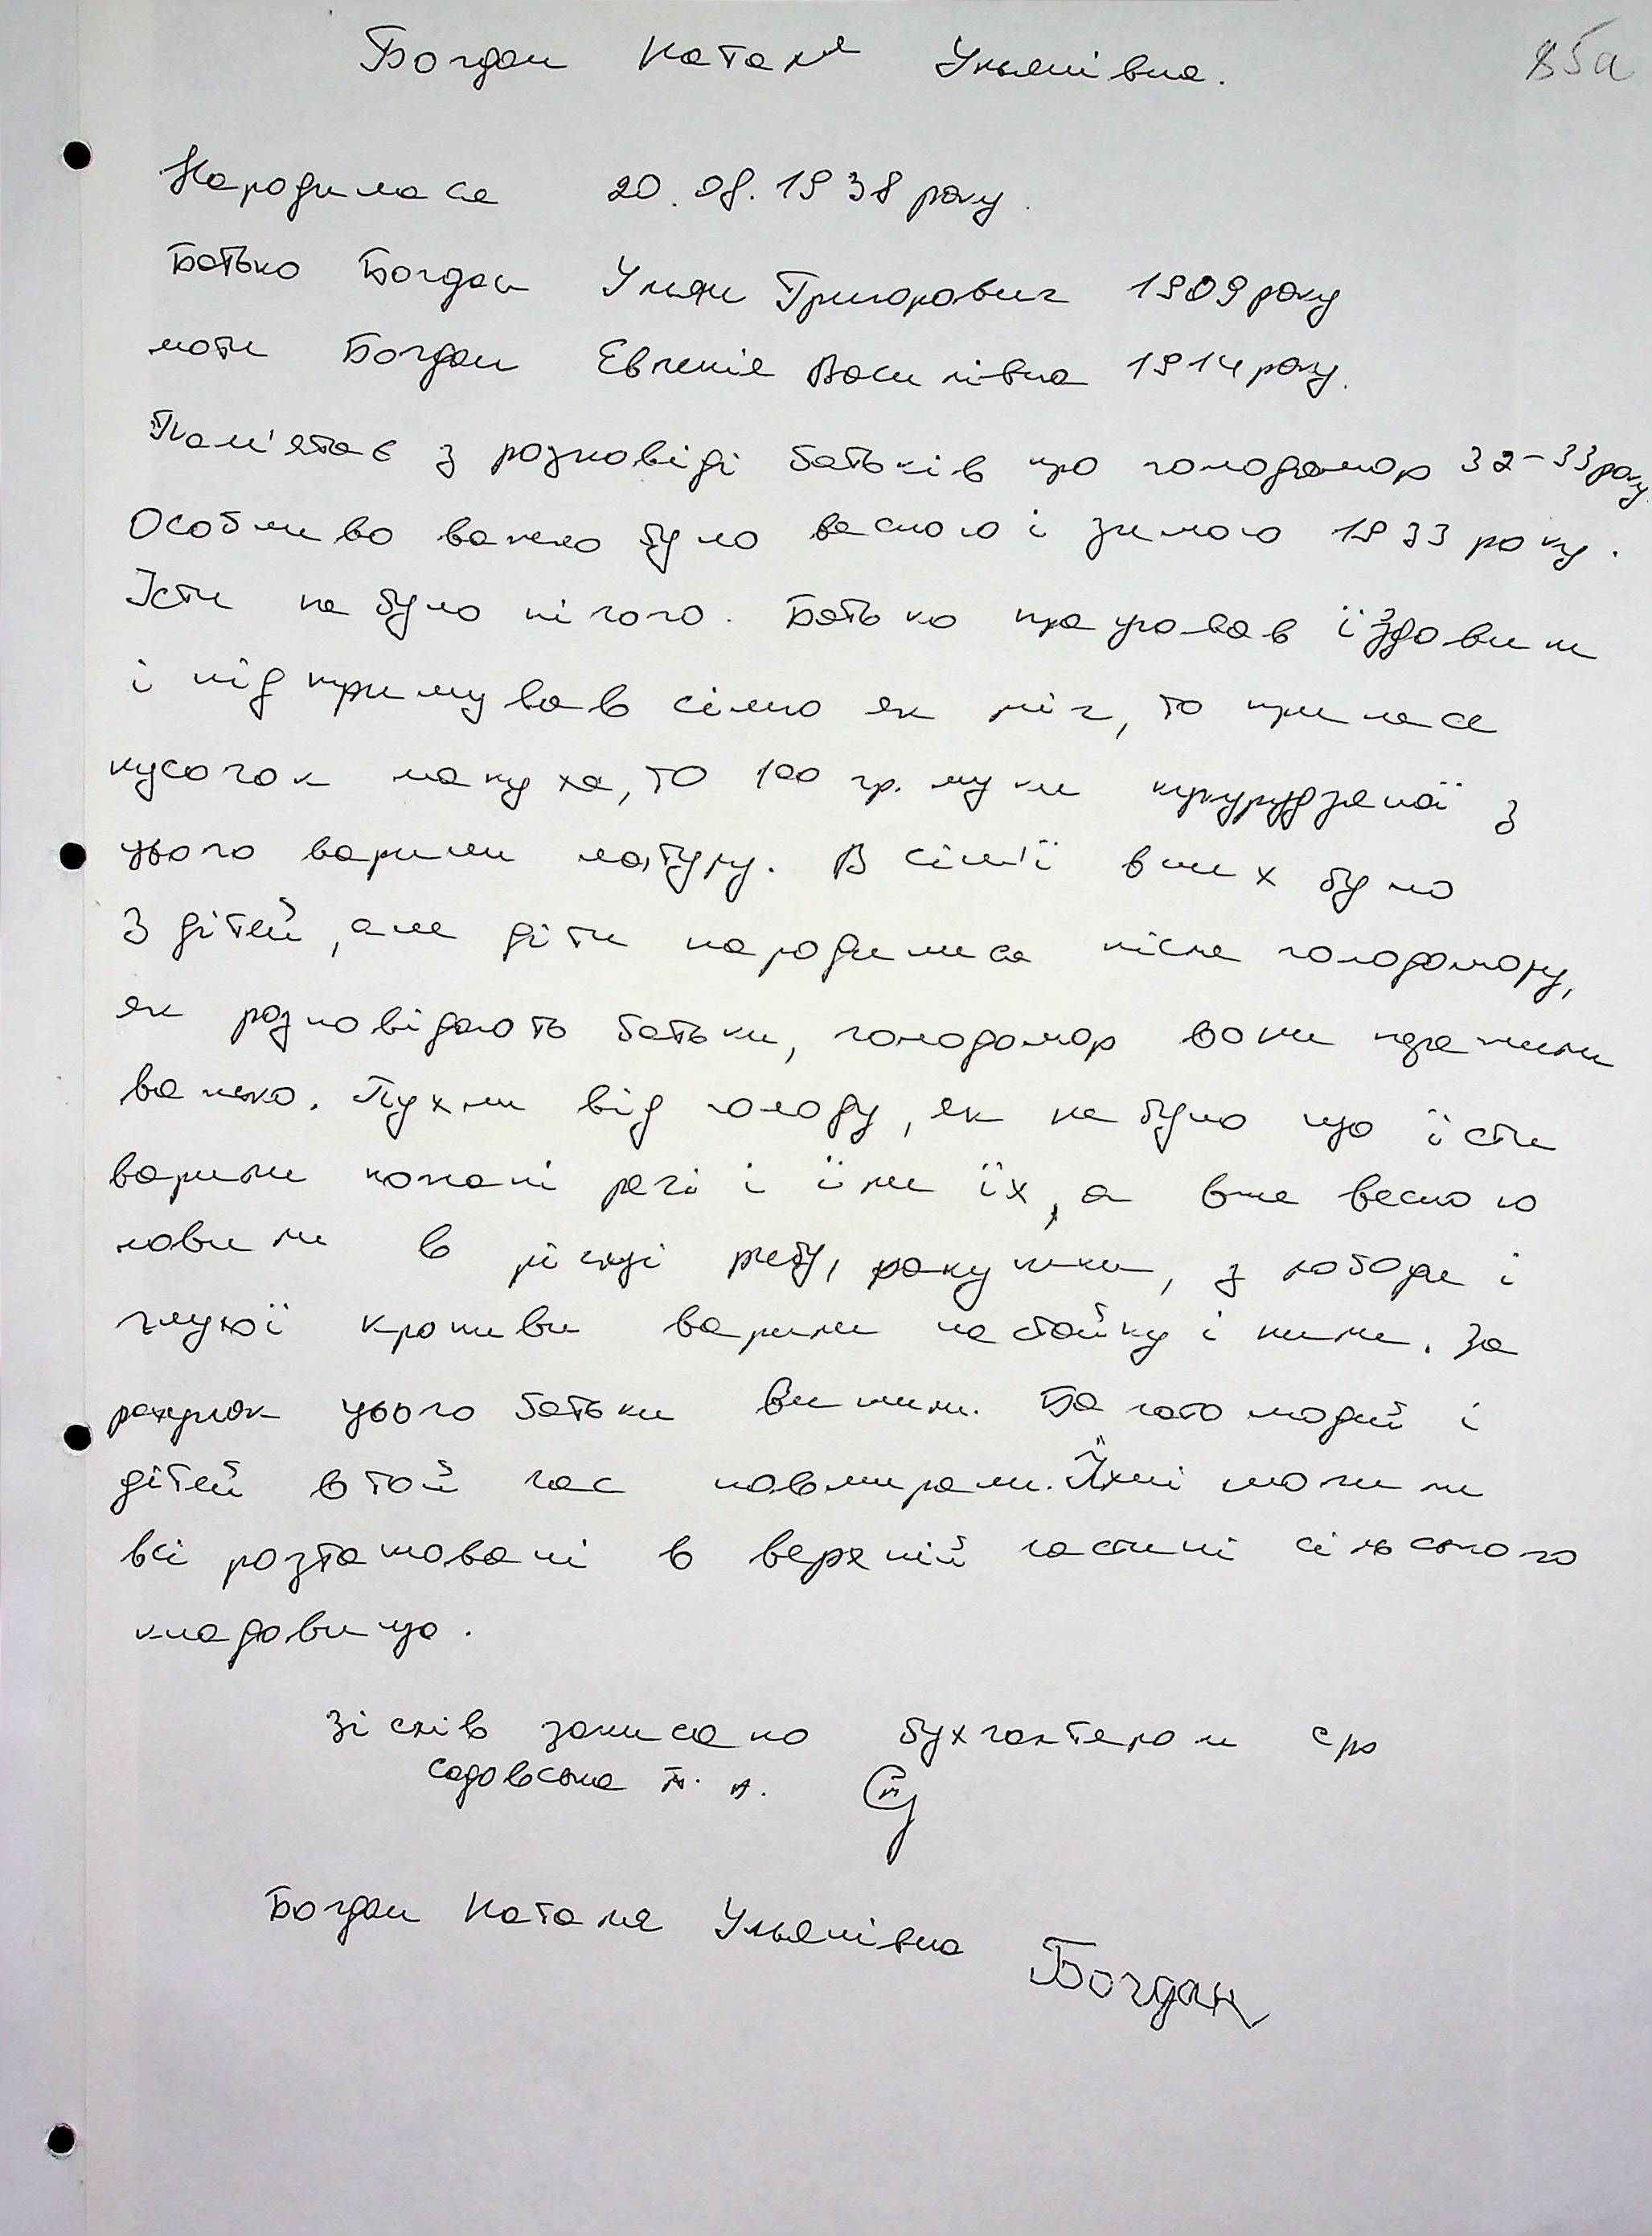 Богдан Наталя Улянівна.
85а
Народилася 20.08.1938 року.
Батько Богдан Улян Григорович 1909 року
мати Богдан Евгенія Василівна 1914 року.
Пам'ятає з розповіді батьків про голодомор 32-33 року.
Особливо важко було весною і зимою 1933 року.
Їсти не було нічого. Батько працював їздовим
і підтримував сімю як міг, то принесе
кусочок макуха, то 100 гр. муки кукурудзяної з
цього варили матуру. В сім'ї в них було
3 дітей, але діти народилися після голодомору,
як розповідають батьки, голодомор вони пережили
важко. Пухли від голоду, як не було що їсти
варили кожані речі і їли їх, а вже весною
ловили в річці рибу, ракушки, з лободи і
глухої кропиви варили настойку і пили. За
рахунок цього батьки вижили. Багато людей і
дітей в той час повмирали. Їхні могили
всі розташовані в верхній частині сільського
кладовища.
Зі слів записано бухгалтером с/р
Садовська
Богдан Наталя Улянівна Богдан